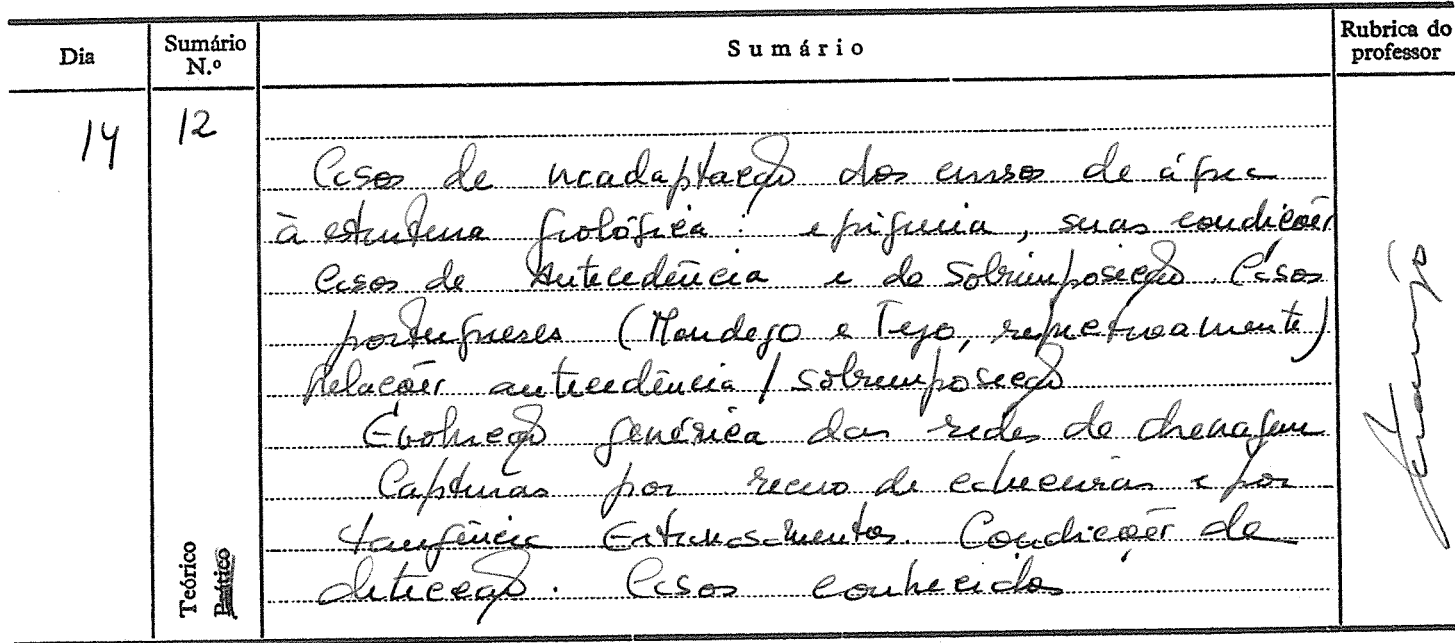 Dia Sumário N.º Sumário Rubrica do professor
14 12
Casos de inadaptação dos cursos de água
à estrutura geológica : epigenia, suas condições
Casos de Antecedência e de Sobreimposição. Casos
portugueses (Mondego e Tejo, respectivamente)
Relações antecedência / sobreimposição
Evolução genérica das redes de drenagem
Capturas por recuo de cabeceiras e por
tangência Extravasamentos. Condições de
detecção. Casos conhecidos
Teórico
Prático